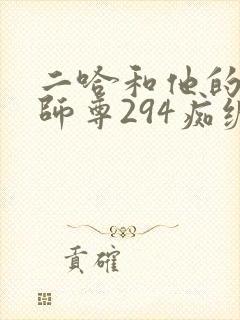 二哈和他的
師尊294痴
貢確